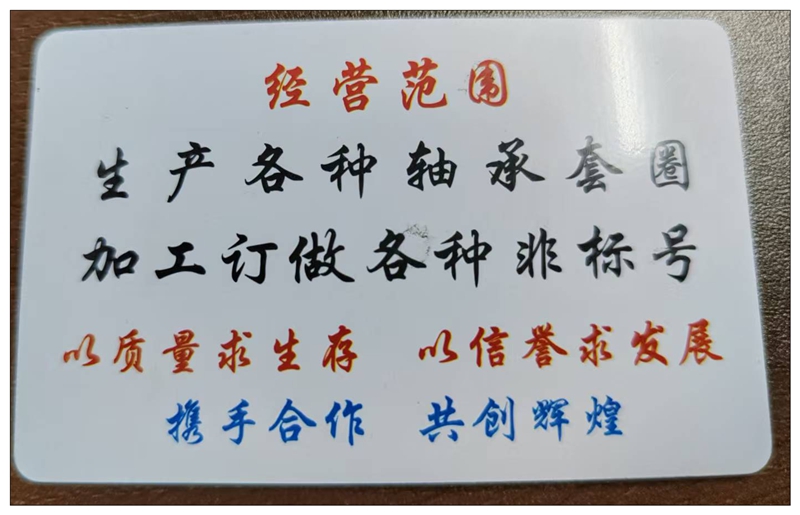 经营范围
生产各种轴承套圈
加工订做各种非标号
以质量求生存 以信誉求发展
携手合作 共创辉煌